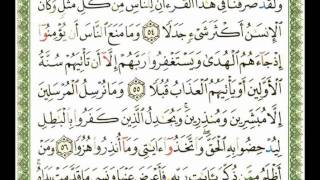 ولقد صرفنا في هذا القرءان للناس من كل مثل وكان
الإنسن أكثر شيء جدلا ٥٤ وما منع الناس أن يؤمنوا
إذ جاءهم الهدى ويستغفروا ربهم إلا أن تأتيهم سنة
الأولين أو يأتيهم العذاب قبلا ٥٥ وما نرسل المرسلين
إلا مبشرين ومنذرين ويجدل الذين كفروا بالبطل
ليدحضوا به الحق واتخذوا ءايتي وما أنذروا هزوا ٥٦ ومن
أظلم ممن ذكر بءايت ربه فأعرض عنها ونسي ما قدمت يداه